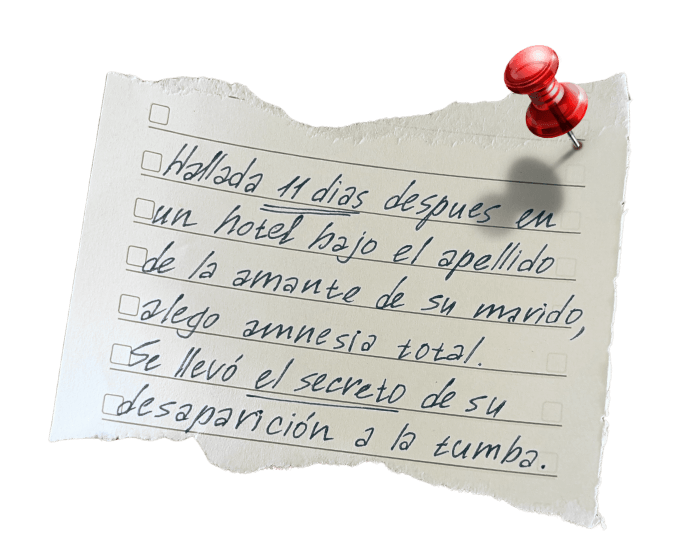 Hallada 11 dias despues en
un hotel bajo el apellido
de la amante de su marido,
alego amnesia total.
Se llevó el secreto de su
desaparición a la tumba.